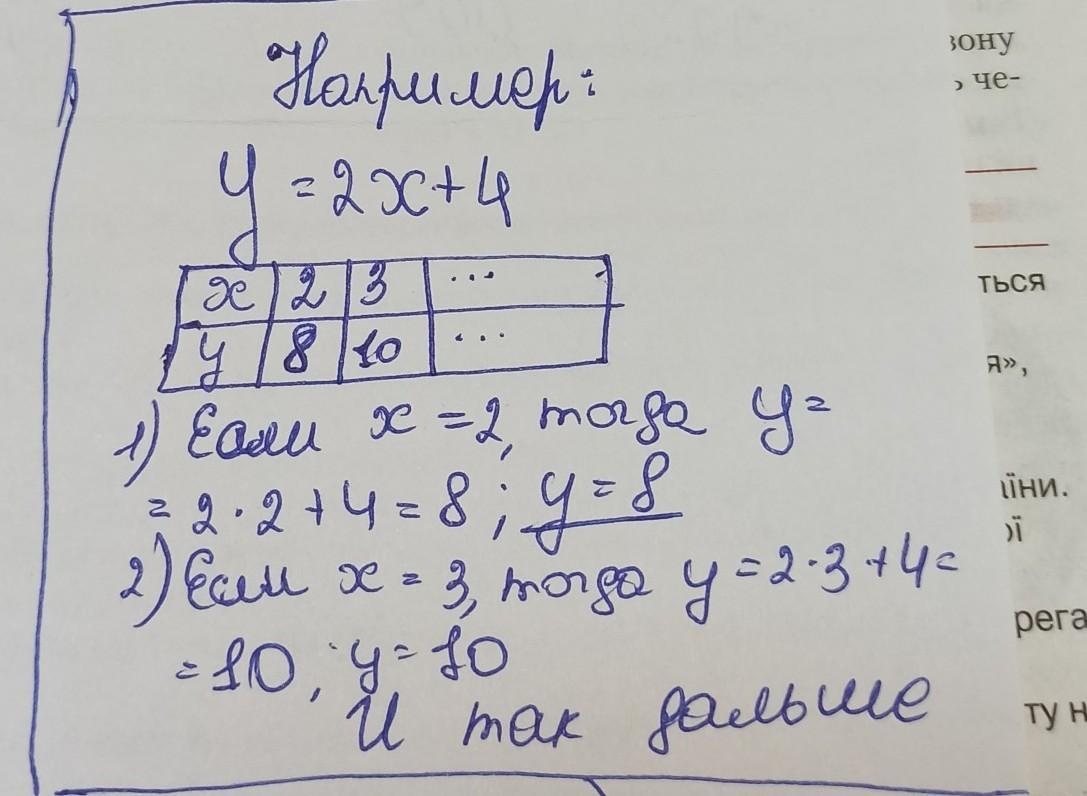 Например:
y = 2x+4
x 2 3 ...
y 8 10 ...
1) Если x = 2, тогда y =
= 2·2+4 = 8; y = 8
2) Если x = 3, тогда y = 2·3+4=
= 10, y = 10
И так дальше
зону
че-
ться
я»,
їни.
ої
рега
ту н